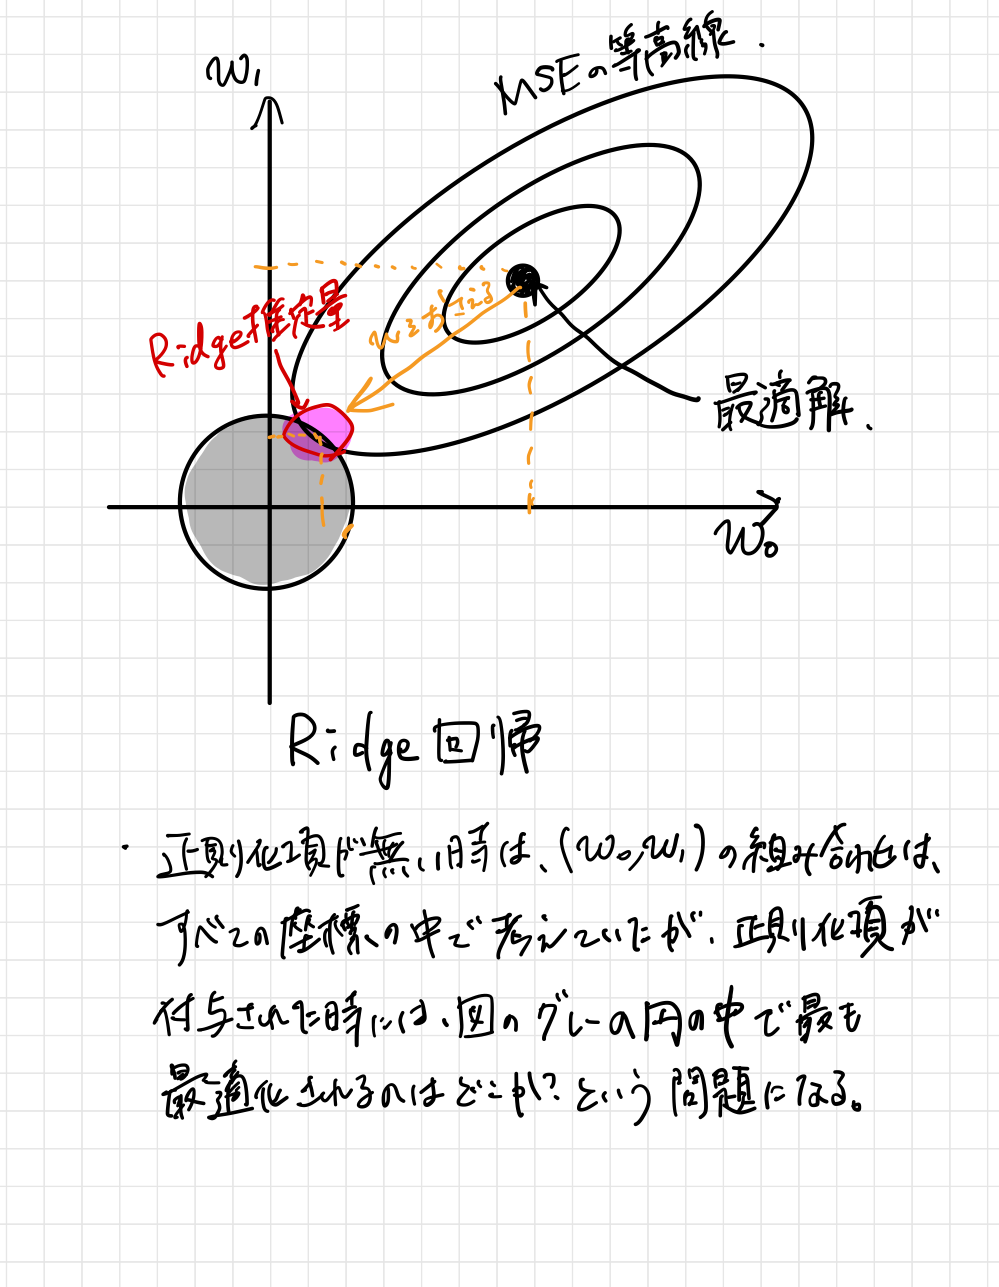 MSEの等高線.
w₁
Ridge推定量
wをおさえる
最適解.
w₀
Ridge回帰
・正則化項が無い時は、(w₀,w₁)の組み合わせは、
すべての座標の中で考えていたが、正則化項が
付与された時には、図のグレーの円の中で最も
最適化されるのはどこか?という問題になる。